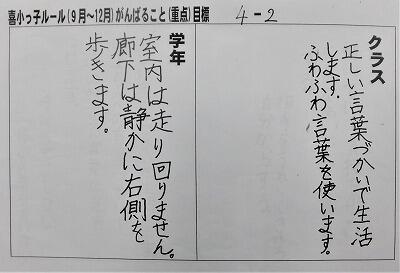 喜小っ子ルール(9月～12月)がんばること(重点)目標 4-2
クラス
正しい言葉づかいで生活
します。
ふわふわ言葉を使います。
学年
室内は走り回りません。
廊下は静かに右側を
歩きます。